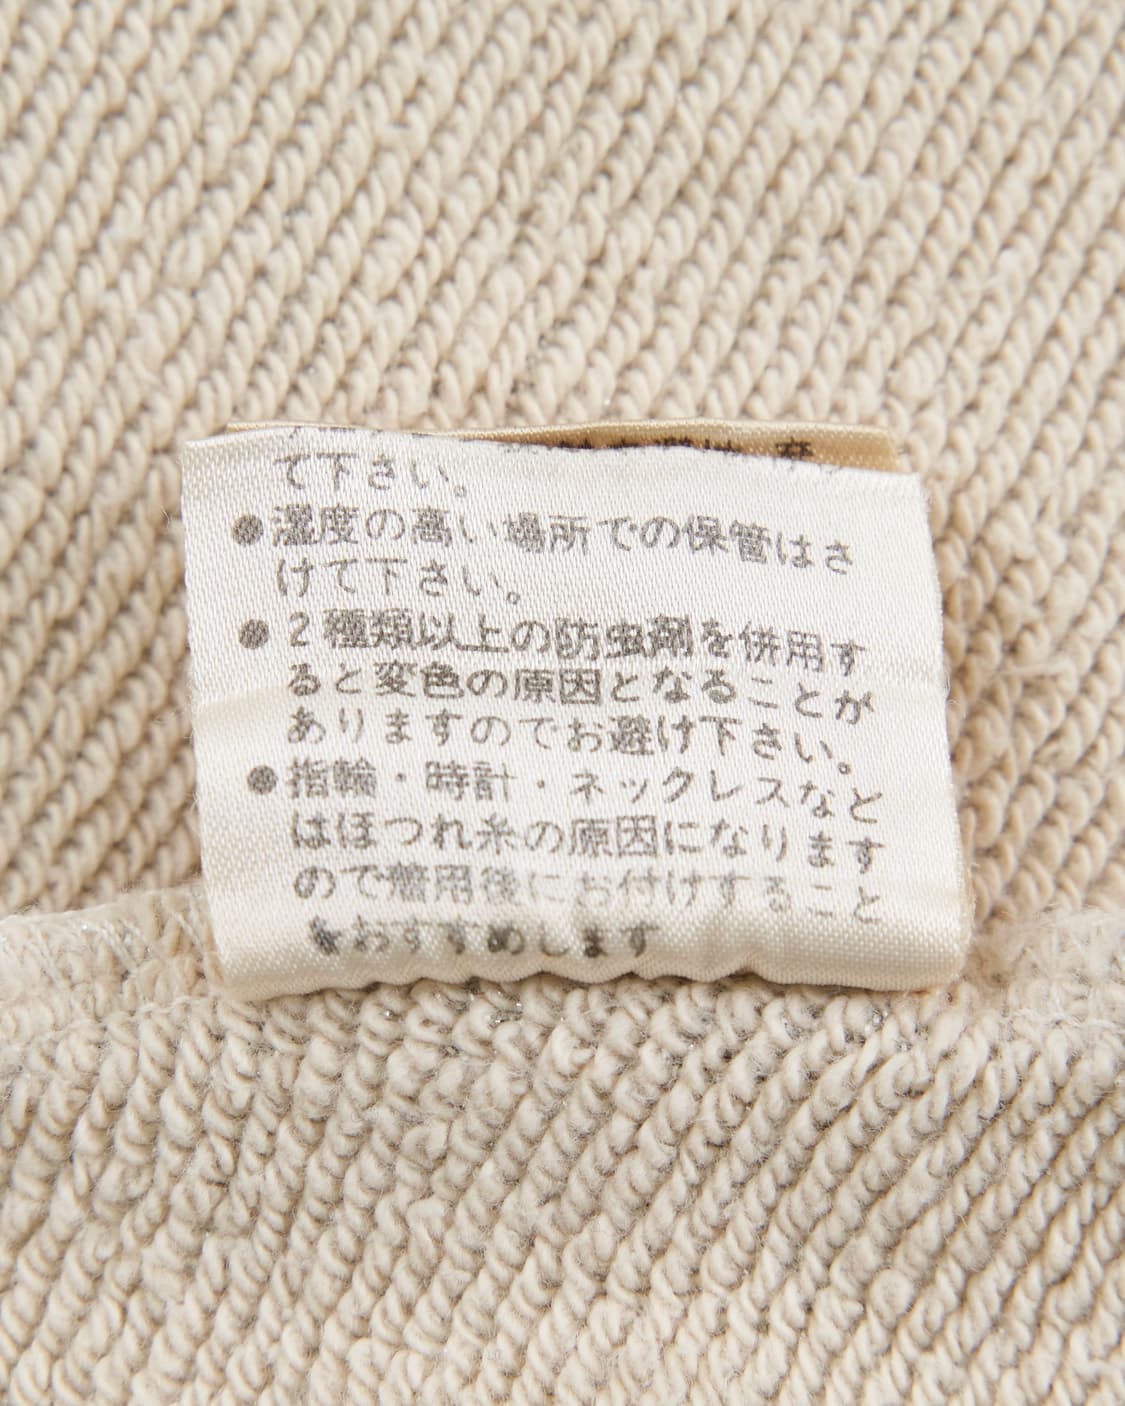 て下さい。
●湿度の高い場所での保管はさ
けて下さい。
●2種類以上の防虫剤を併用す
ると変色の原因となることが
ありますのでお避け下さい。
●指輪・時計・ネックレスなど
はほつれ糸の原因になります
ので着用後にお付けすること
をおすすめします